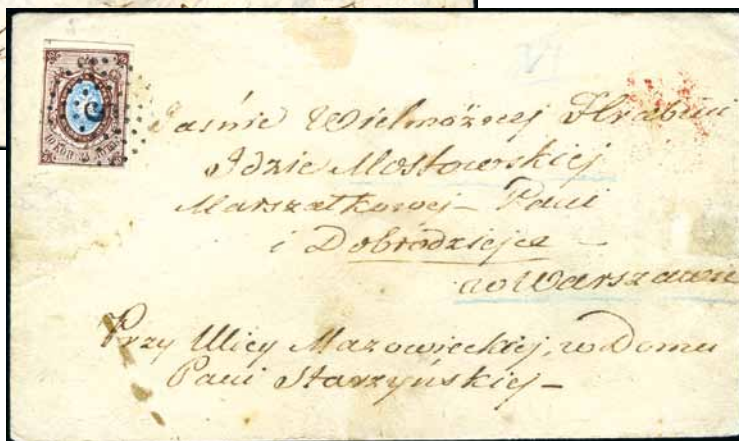 Jaśnie Wielmożnej Hrabini
Idzie Mostowskiej
Marszałkowej - Pani
i Dobrodziejce -
w Warszawie
Przy Ulicy Mazowieckiej, w Domu
Pani Starzyńskiej -